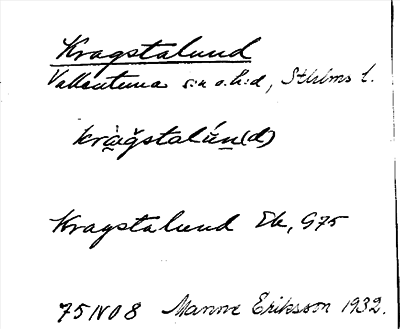 Kragstalund
Vallentuna s:n o. h:d, Sthlms l.
kràgstalún(d)
Kragstalund Ek, G75
75 IV 0 8 Manne Eriksson 1932.